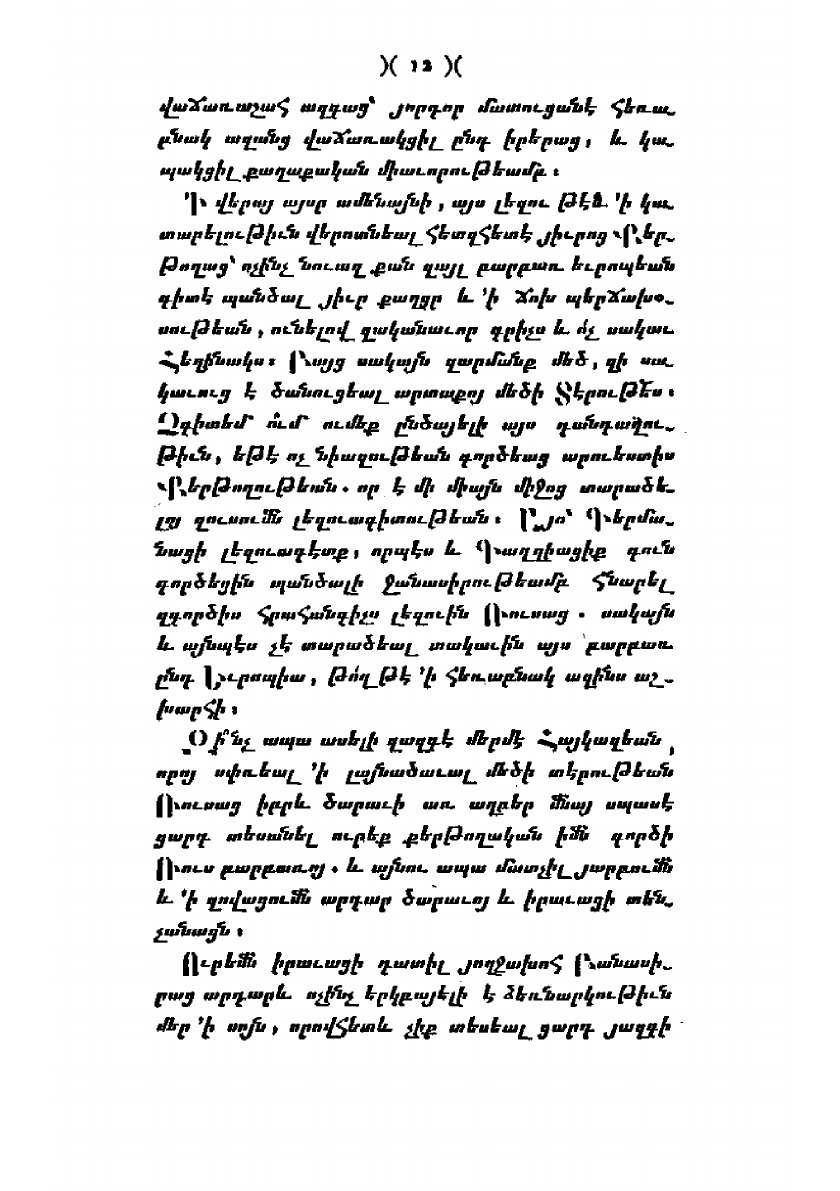 )( 12 )(
վաճառաշահ ազգաց՝ յորդոր մատուցանէ հեռա֊
բնակ ազանց վաճառակցիլ ընդ իրերաց, և կա֊
պակցիլ քաղաքական միաւորութեամբ։
՚Ի վերայ այսր ամենայնի, այս լեզու թէև ՚ի կա֊
տարելութիւն վերոտնեալ հետզհետէ յիւրոց Քեր֊
թողաց՝ ոչինչ նուազ քան զայլ բարբառ եւրոպեան
գիտէ պանծալ յիւր քաղցր և ՚ի ճոխ պերճախօ֊
սութեան, ունելով զականաւոր գրիչս և ոչ սակաւ
Հեղինակս։ Բայց սակայն զարմանք մեծ, զի սա֊
կաւուց է ծանուցեալ արտաքոյ մեծի Տէրութես։
Չգիտեմ ում ումեք ընծայելի այս դանդաղու֊
թիւն, եթէ ոչ նիազութեան գործեաց արուեստիս
Քերթողութեան. որ է մի միայն միջոց տարածե֊
լոյ զուսումն լեզուագիտութեան։ Այո՝ Գերմա֊
նացի լեզուագետք, որպէս և Գաղղիացիք գուն
գործեցին պանծալի ջանասիրութեամբ հնարել
զգործիս հրահանգիչս լեզուին Ռուսաց. սակայն
և այնպէս չէ տարածեալ տակաւին այս բարբառ
ընդ Եւրոպիա, թող թէ ՚ի հեռաբնակ ազինս աշ֊
խարհի։
Օի՞նչ ապա ասելի զազգէ մերմէ Հայկազեան,
որոյ սփռեալ ՚ի լայնածաւալ մեծի տէրութեան
Ռուսաց իբրև ծարաւի առ աղբեր մնայ սպասէ
ցարդ տեսանել ուրեք քերթողական իմն գործի
Ռուս բարբառոյ. և այնու ապա մատչիլ յարբումն
և ՚ի զովացումն արդար ծարաւոյ և իրաւացի տեն֊
չանացն։
Ուրեմն իրաւացի դատիլ յողջախոհ Բանասի֊
րաց արդարև ոչինչ երկբայելի է ձեռնարկութիւն
մեր ՚ի սոյն, որովհետև չիք տեսեալ ցարդ յազգի